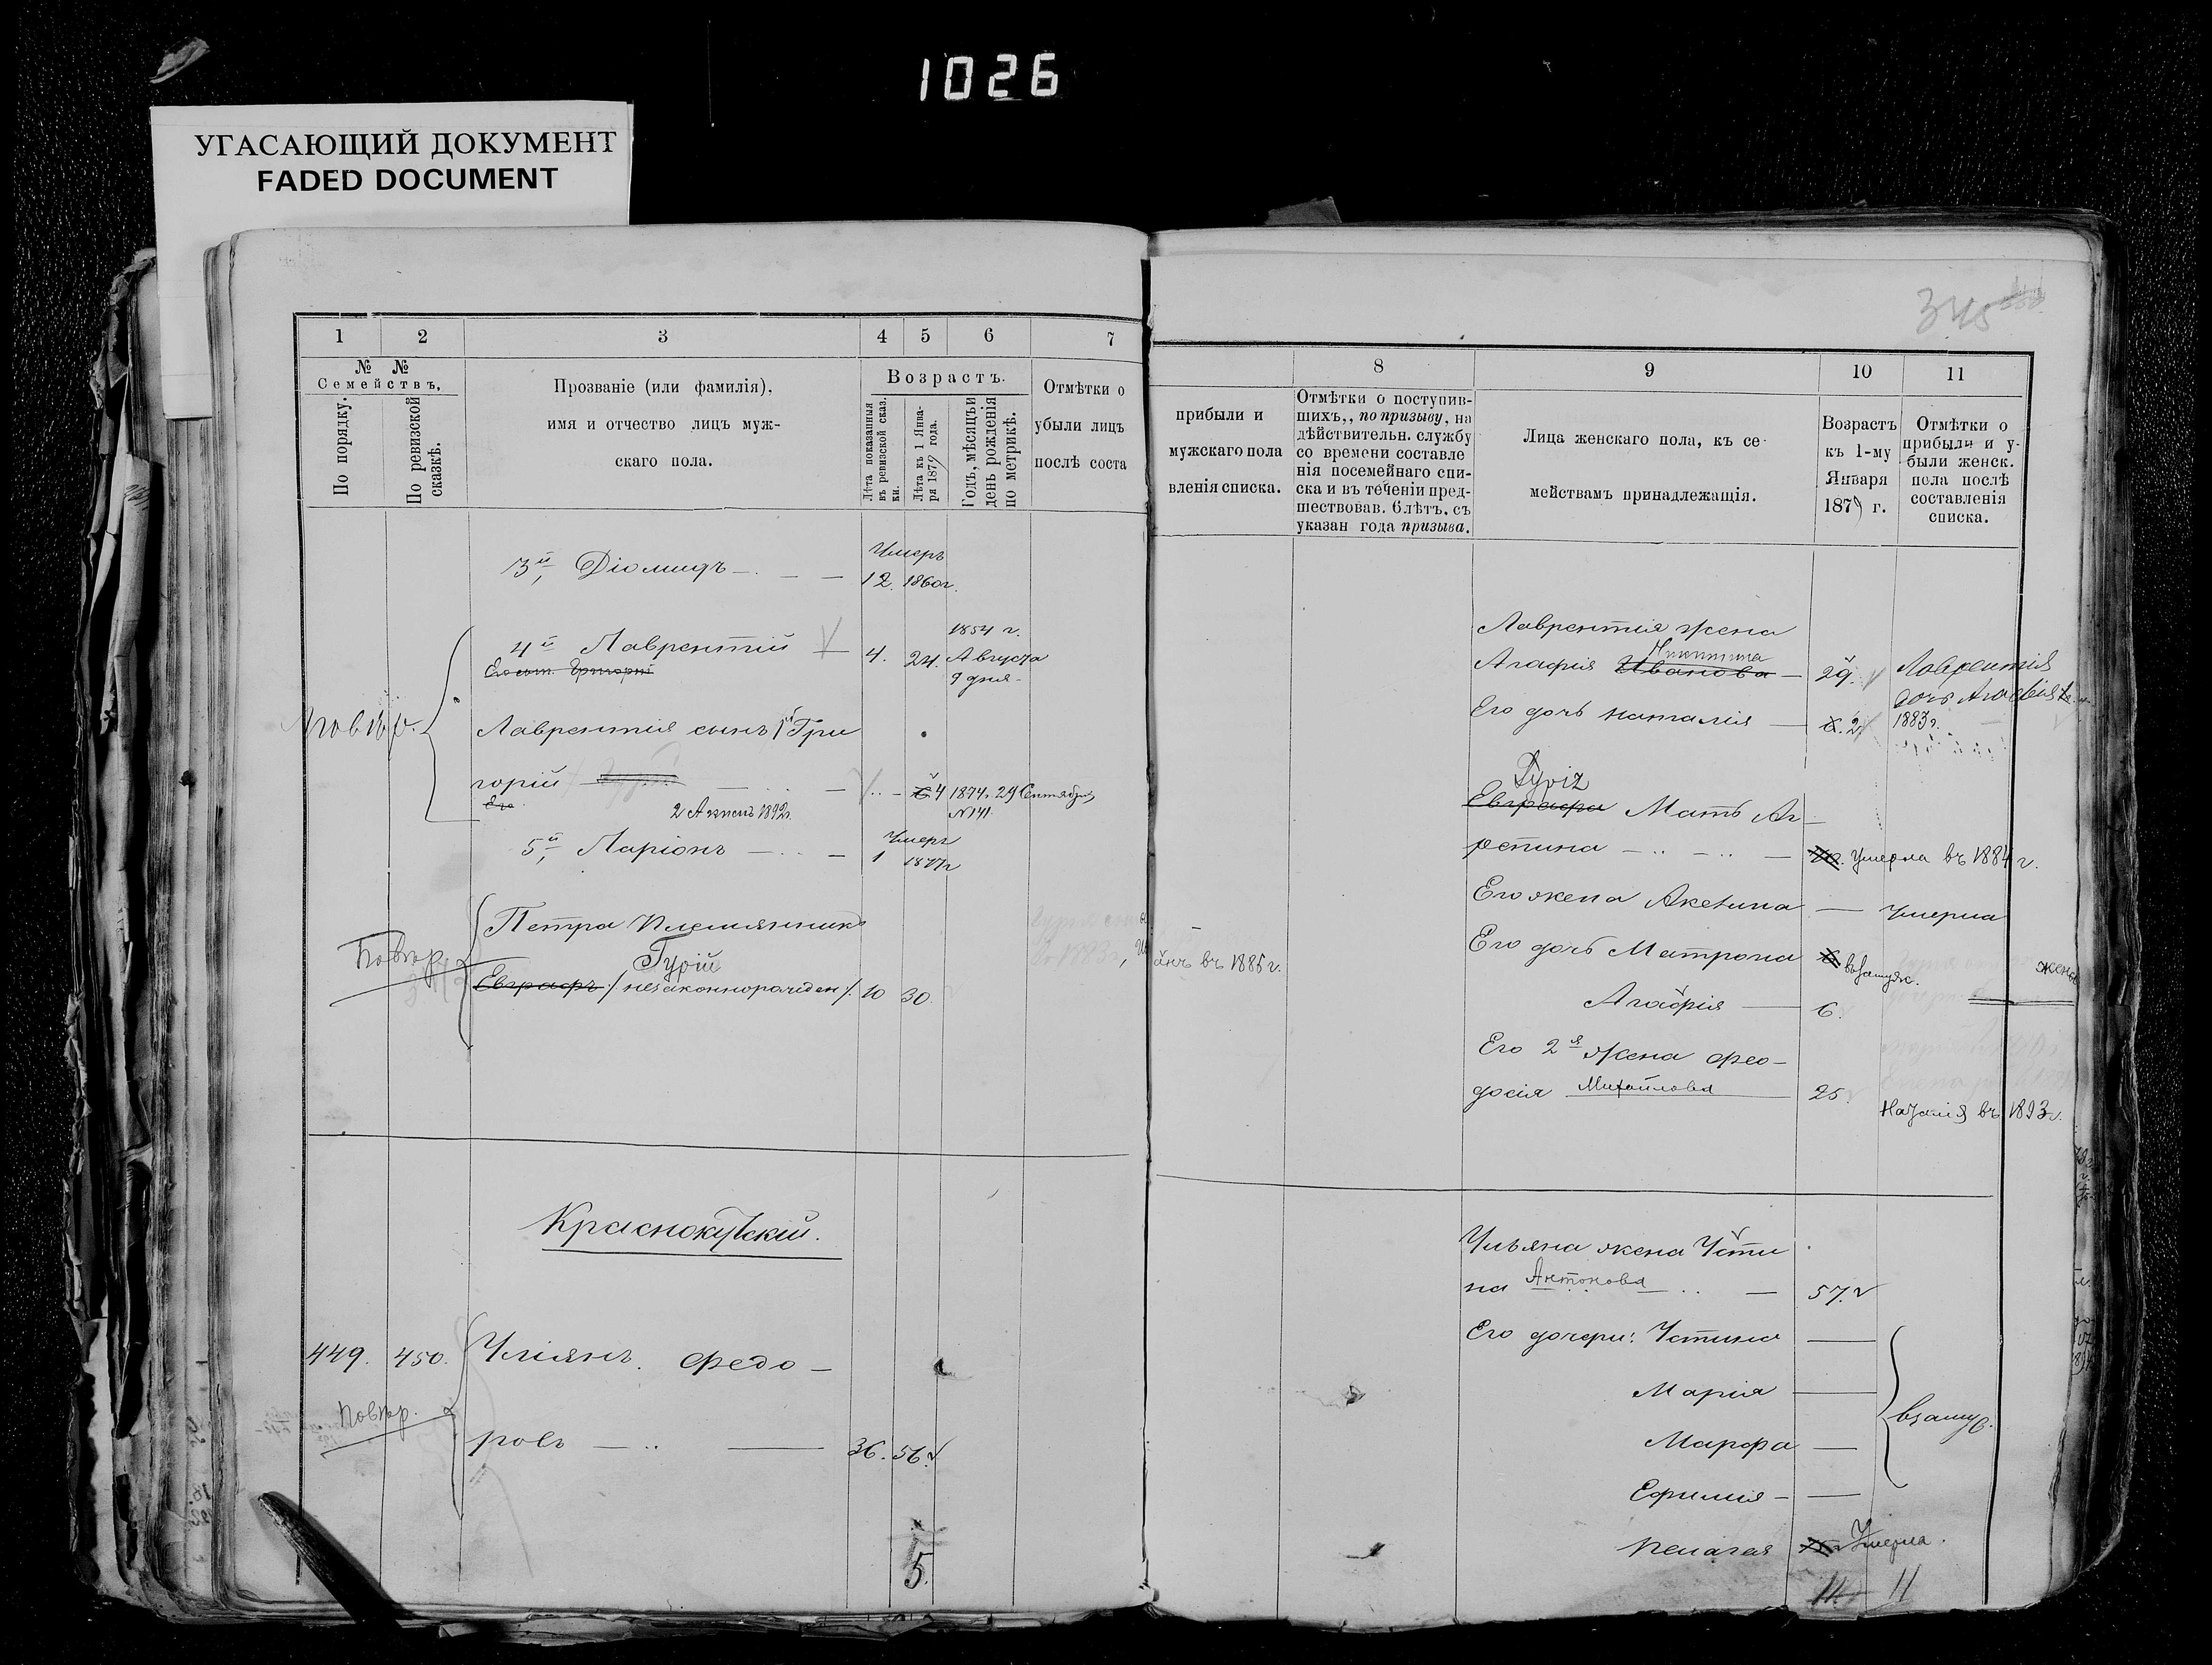 1026
УГАСАЮЩИЙ ДОКУМЕНТ
FADED DOCUMENT
345
1 2 3 4 5 6 7
№ №
Семействъ,
По порядку.
По ревизской сказкѣ.
Прозваніе (или фамилія),
имя и отчество лицъ муж-
скаго пола.
Возрастъ.
Лѣта показанныя въ ревизской сказ. ки.
Лѣта къ 1 Янва- ря 1879 года.
Годъ, мѣсяцъ и день рожденія по метрикѣ.
Отмѣтки о
убыли лицъ
послѣ соста
3й, Діомидъ
Умеръ
12. 1860г.
4й Лаврентій 4. 24.
1854 г.
Августа
9 дня
Его сын. Григорій
Повѣр.
Лаврентія сынъ 1й Гри
горій 4 1874. 29 Сентября,
Его
№141
1892г.
5й, Ларіонъ
Умеръ
1 1877г
Петра племянникъ
Повѣр.
Гурій
Евграфъ /незаконнорожден/. 10 30.
Краснокутскій.
449. 450. Уліянъ. Федо-
Повѣр.
ровъ 36. 56.
5.
8 9 10 11
прибыли и
мужскаго пола
вленія списка.
Отмѣтки о поступив-
шихъ,, по призыву, на
дѣйствительн. службу
со времени составле
нія посемейнаго спи-
ска и въ теченіи пред-
шествовав. 6 лѣтъ, съ
указан года призыва.
Лица женскаго пола, къ се-
мействамъ принадлежащія.
Возрастъ
къ 1-му
Января
1879 г.
Отмѣтки о
прибыли и у-
были женск.
пола послѣ
составленія
списка.
Лаврентія жена
Никитина
Агафія Иванова 29.
Лаврентія
дочь
Его дочь Наталія 2
1883г.
Евграфа Мать Аг
репина Умерла въ 1884г.
Его жена Аксинія Умерла
въ 1885г.
Его дочь Матрона взамуж.
Агафія 6.
Его 2я жена Фео-
досія Михайлова 25.
Наталія въ 1893г.
Ульяна жена Усти
на Антонова 57.
Его дочери: Устина
Марія
взамуж.
Марфа
Ефимія
Пелагея Умерла.
11. 11